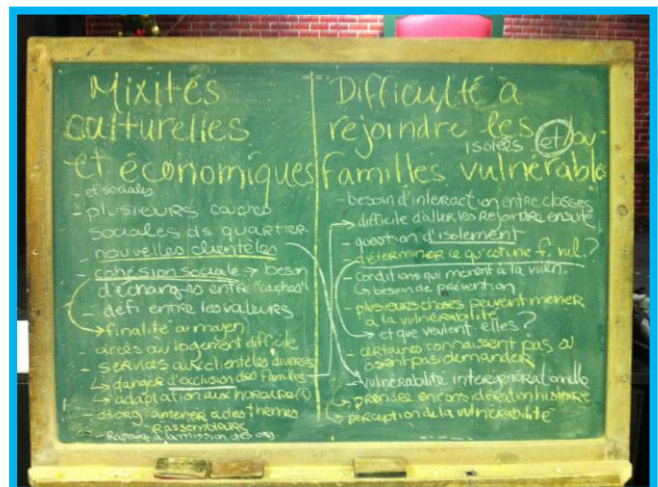 Mixités
culturelles
et économiques
- et sociales
- plusieurs couches
sociales ds quartier
- nouvelles clientèles
- cohésion sociale → besoin
d'échanges entre "couches"
- défi entre les valeurs
→ finalité au moyen
- accès au logement difficile
- services aux clientèles diverses
↳ danger d'exclusion des familles
↳ adaptation aux horaires
- dsorg. amener à des thèmes
rassembleurs
à la mission des org
Difficulté à
rejoindre les
isolées et/ou
familles vulnérables
- besoin d'interaction entre classes
- difficile d'aller les rejoindre ensuite
- question d'isolement
- déterminer ce qu'est une f. vul.?
- conditions qui mènent à la vuln.
↳ besoin de prévention
- plusieurs choses peuvent mener
à la vulnérabilité
→ et que veulent-elles?
- certaines connaissent pas ou
osent pas demander
- vulnérabilité intergénérationnelle
↳ prendre en considération histoire
- perception de la vulnérabilité